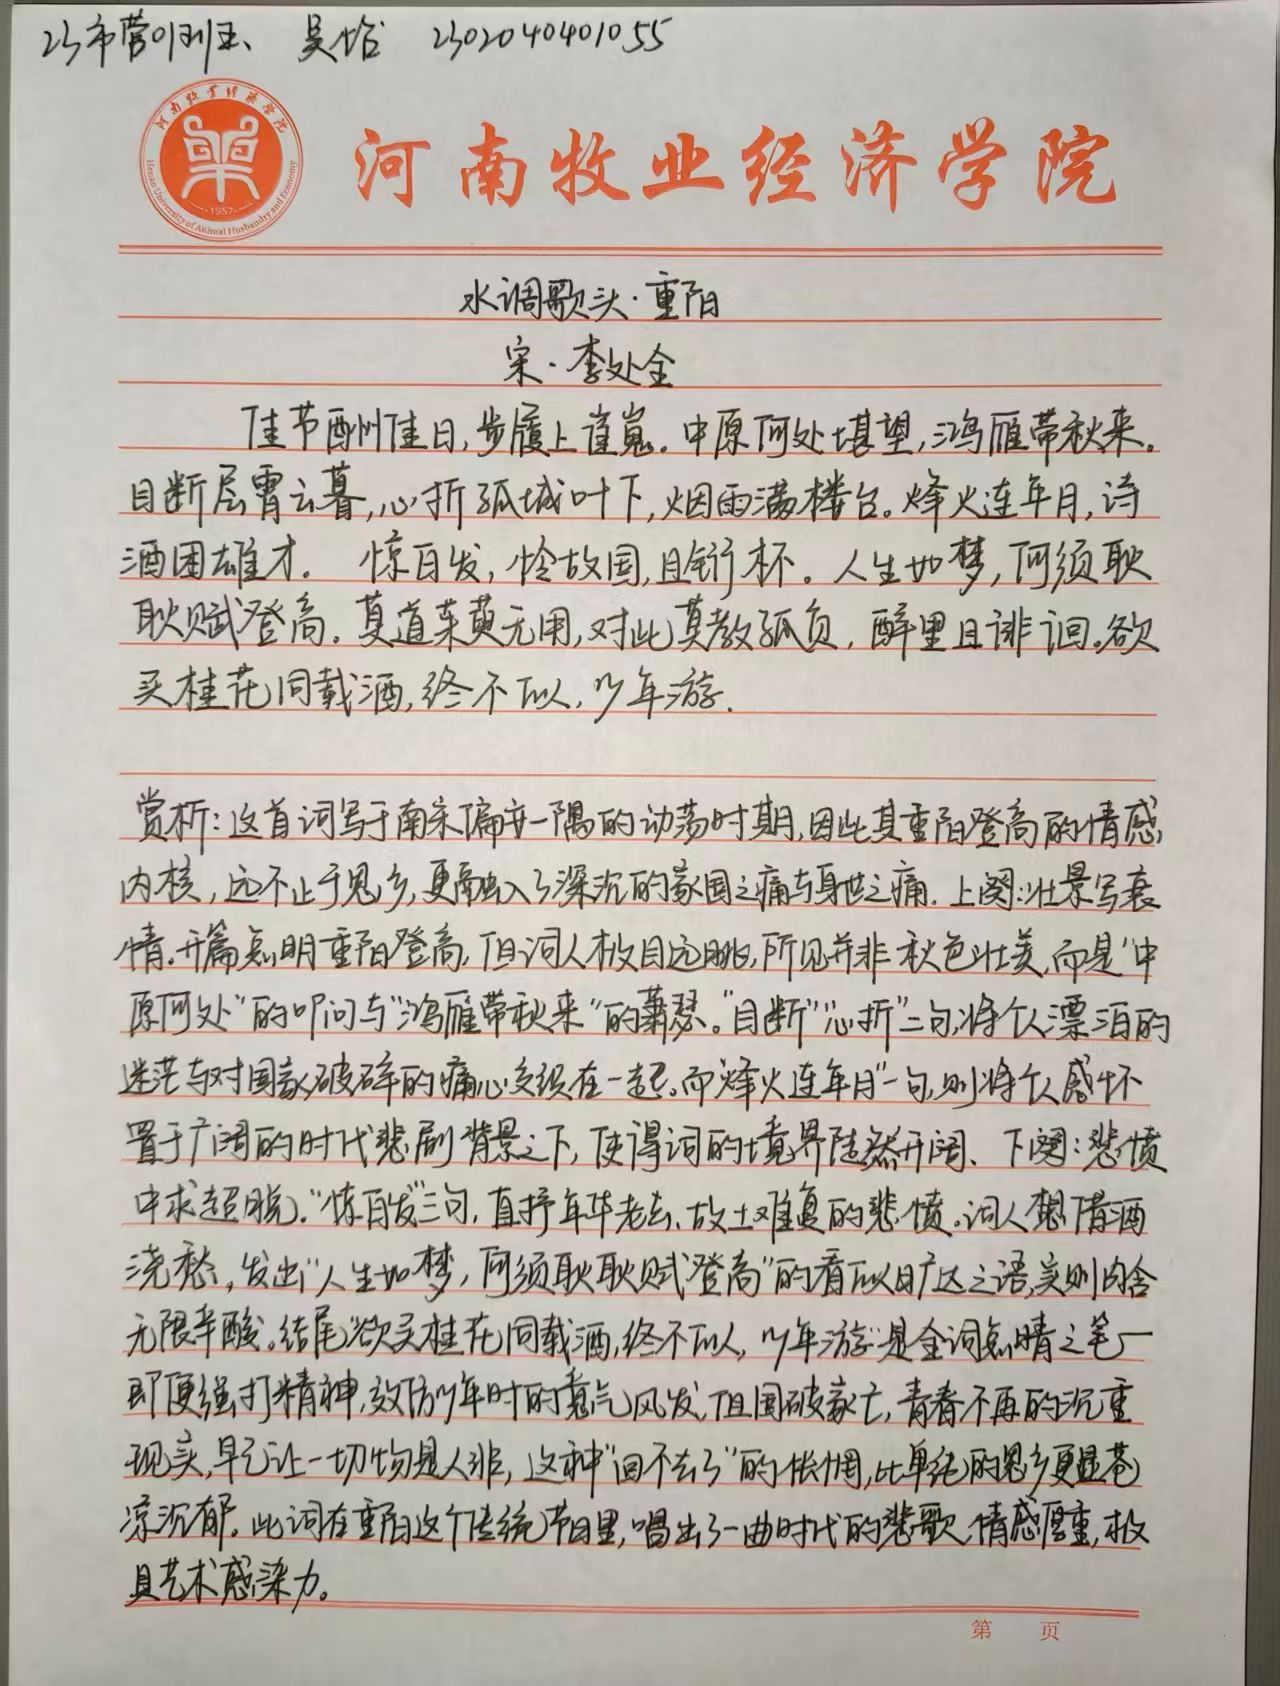 23市营01班 吴 2302040401055
河南牧业经济学院
Henan University of Animal Husbandry and Economy
·1957·
河南牧业经济学院
水调歌头·重阳
宋·李处全
佳节酬佳日,步履上崔嵬。中原何处堪望,鸿雁带秋来。
目断层霄云暮,心折孤城叶下,烟雨满楼台。烽火连年月,诗
酒困雄才。 惊白发,怜故国,且衔杯。人生如梦,何须耿
耿赋登高。莫道茱萸无用,对此莫教孤负,醉里且诽诙。欲
买桂花同载酒,终不似,少年游.
赏析:这首词写于南宋偏安一隅的动荡时期,因此其重阳登高的情感
内核,远不止于思乡,更融入了深沉的家国之痛与身世之痛.上阕:壮景写衰
情.开篇点明重阳登高,但词人极目远眺,所见并非秋色壮美,而是"中
原何处"的叩问与"鸿雁带秋来"的萧瑟。"目断""心折"二句,将个人漂泊的
迷茫与对国家破碎的痛心交织在一起。而"烽火连年月"一句,则将个人感怀
置于广阔的时代悲剧背景之下,使得词的境界陡然开阔、下阕:悲愤
中求超脱."惊白发"三句,直抒年华老去、故土难复的悲愤。词人想借酒
浇愁,发出"人生如梦,何须耿耿赋登高"的看似旷达之语,实则内含
无限辛酸。结尾"欲买桂花同载酒,终不似,少年游"是全词点睛之笔一
即便强打精神,效仿少年时的意气风发,但国破家亡,青春不再的沉重
现实,早已让一切物是人非,这种"回不去了"的怅惘,比单纯的思乡更显苍
凉沉郁.此词在重阳这个传统节日里,唱出了一曲时代的悲歌,情感厚重,极
具艺术感染力。
第 页